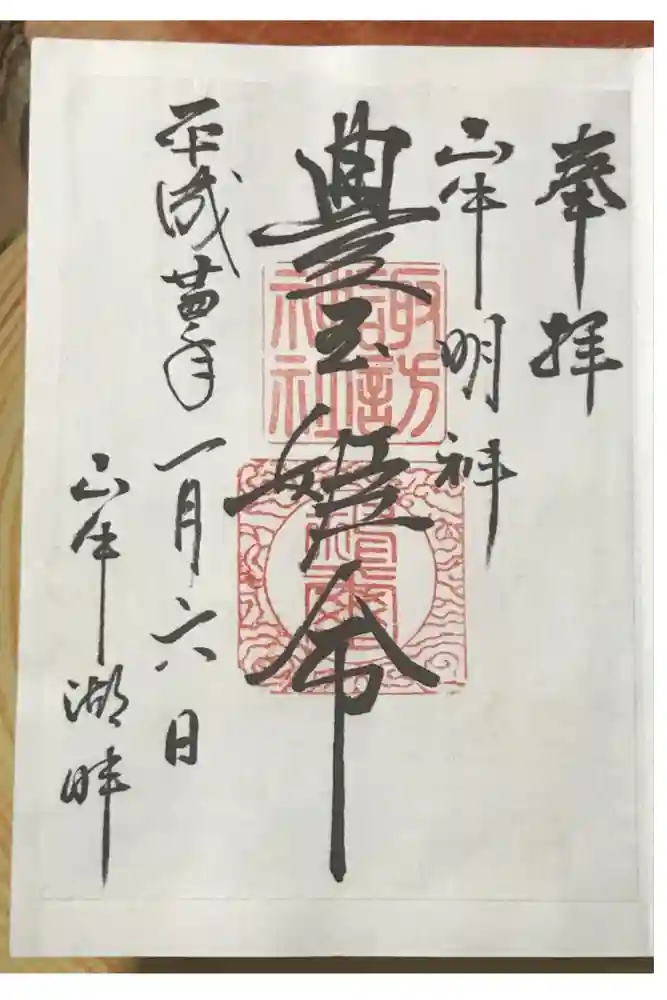 奉拝
山中明神
豊玉姫命
平成廿四年一月六日
山中湖畔
諏訪神社